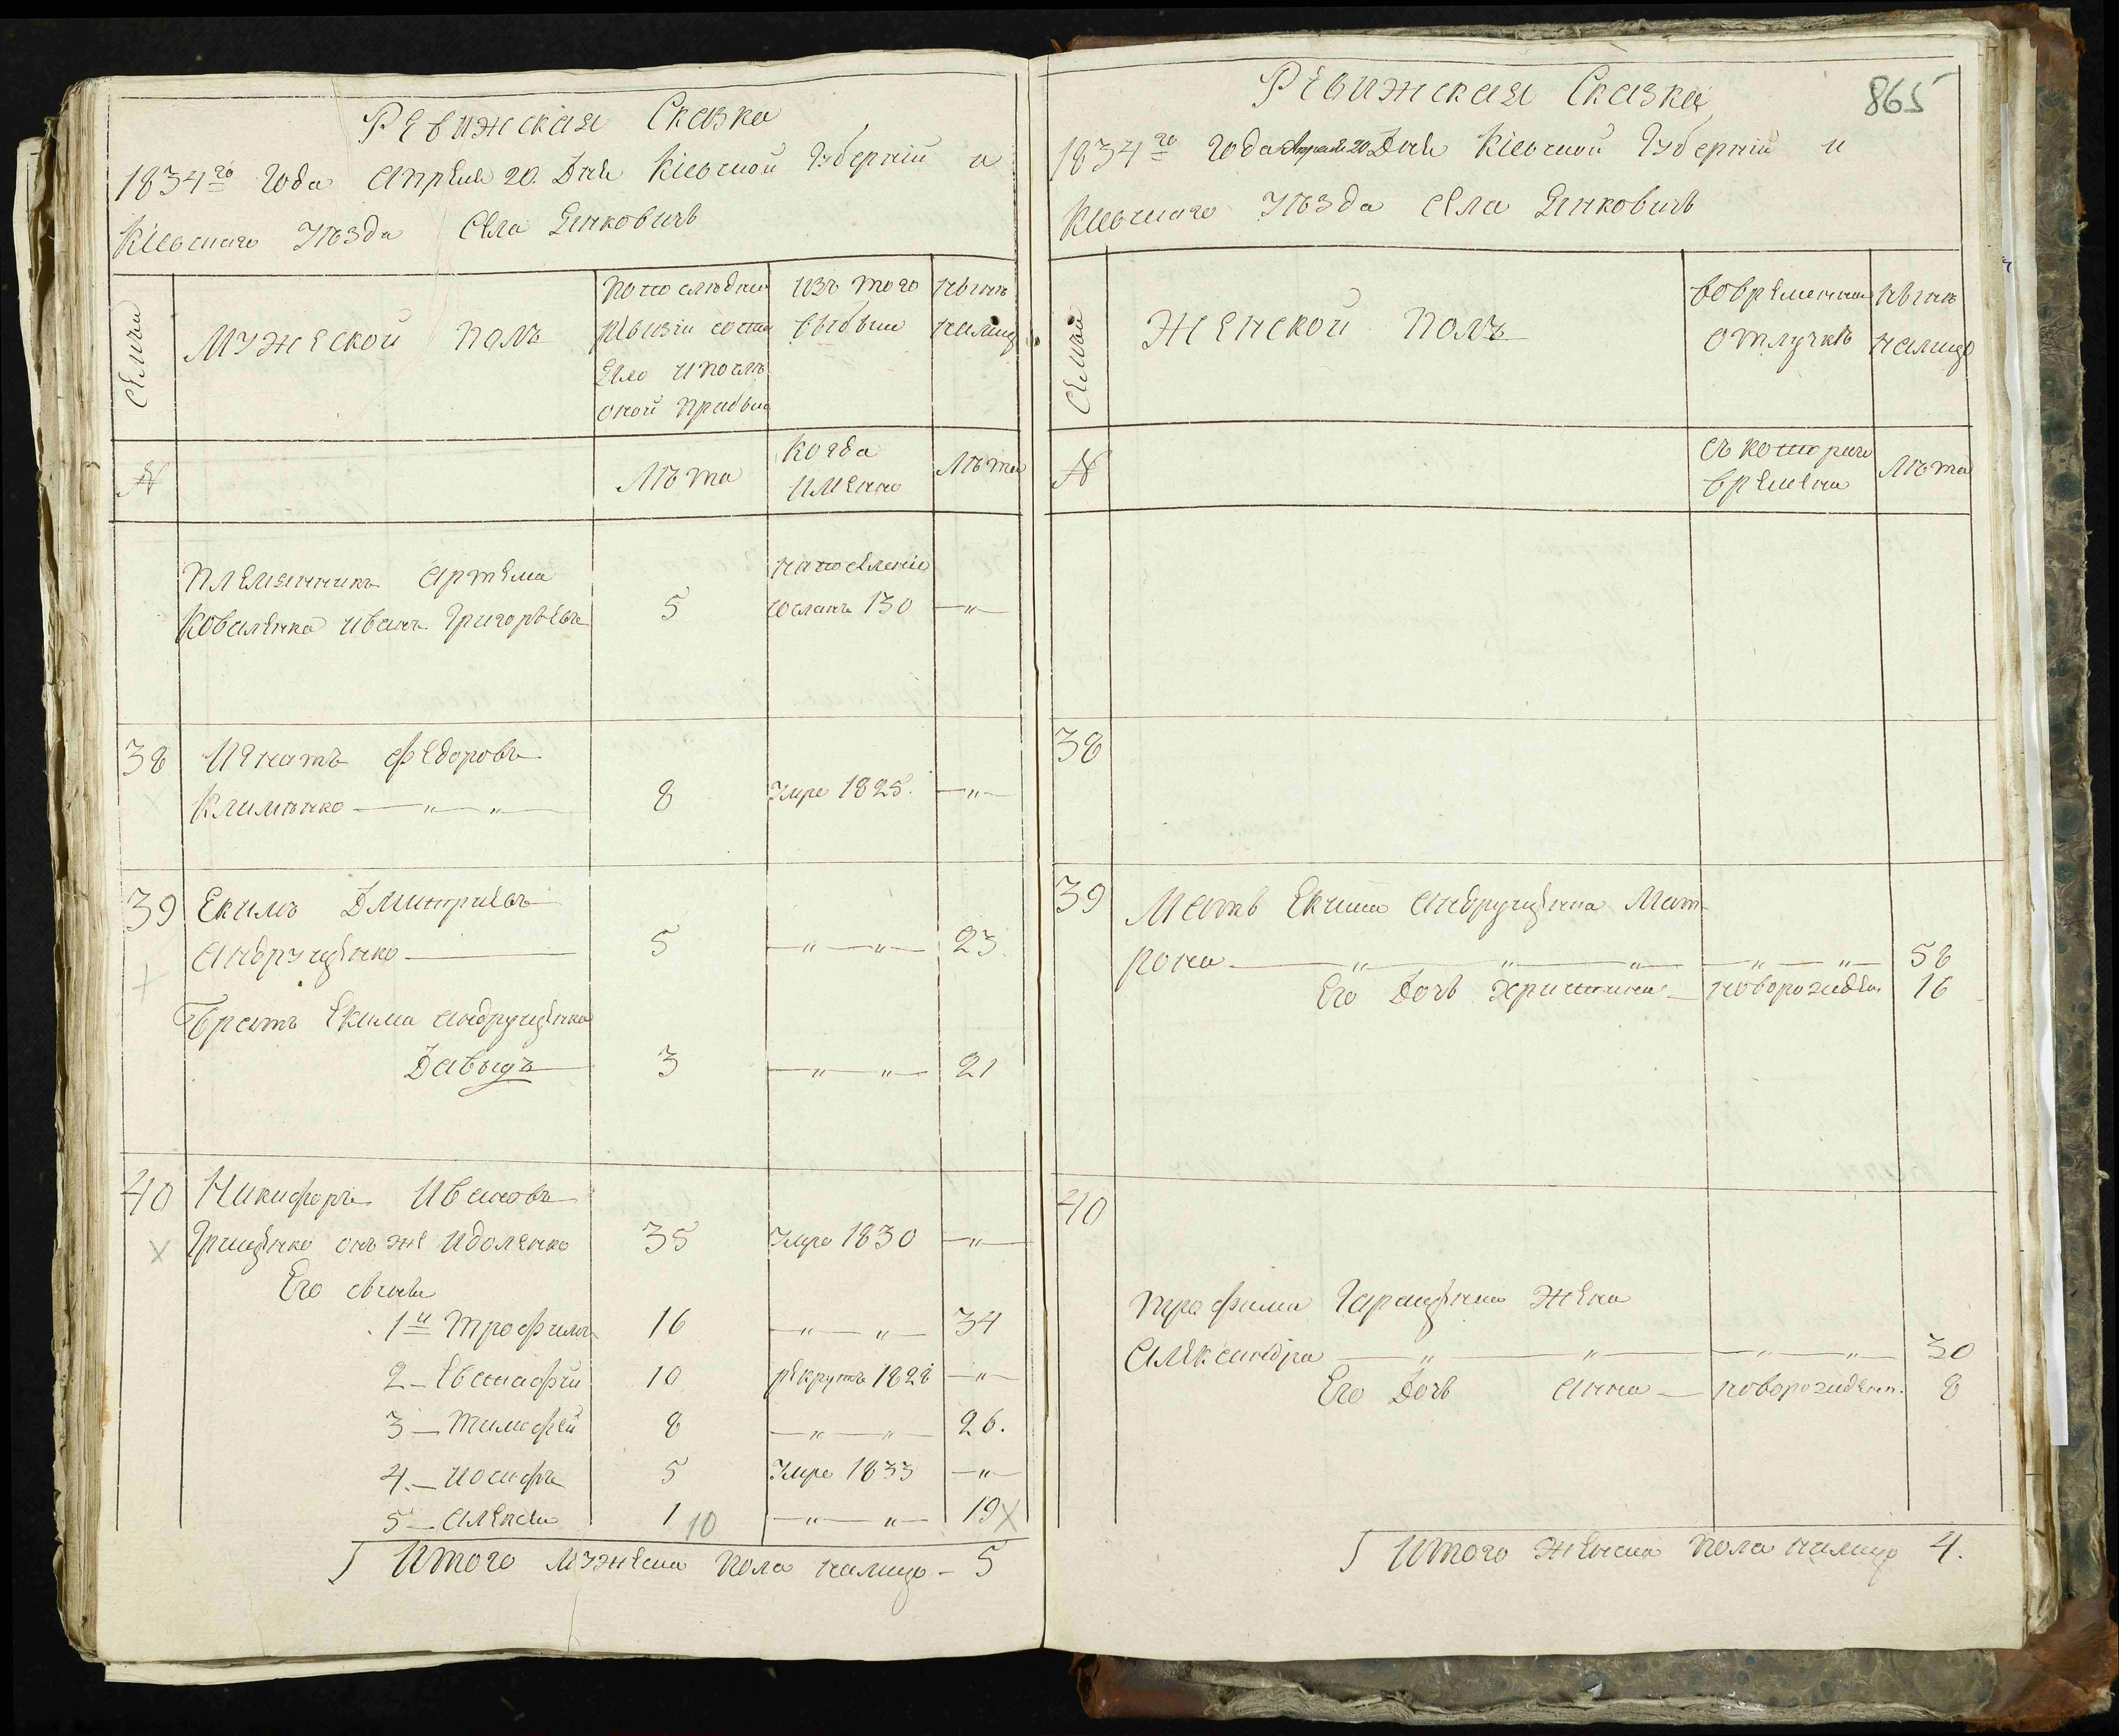 Ревижская Сказка
1834го Года Апреля 20. Дня Кіевской Губерній и
Кіевскаго Уѣзда Села Янковичь
Семьи
Мужеской полъ
По последней
ревизіи состо
яло и послѣ
оной прибыло
Изъ того
выбыло
Нынѣ
налицо
№
Лѣта
Когда
именно
Лѣта
Племянникъ Артема
Коваленка Иванъ Григорьевъ 5
на поселеніе
сосланъ 130 —"—
38 Игнатъ Федоровъ
Климѣнко —"—"— 8 Умре 1825. —"—
39 Екимъ Дмитріевъ
Андрущенко — 5 —"—"— 23.
Братъ Екима Андрущенка
Давыдъ 3 —"—"— 21
40 Никифоръ Ивановъ
Грищенко онъ же Идоленко 35 Умре 1830 —"—
Его сыны
1й Трофимъ 16 —"—"— 34
2 — Евстафій 10 рекрутъ 1828 —"—
3 — Тимофей 8 —"—"— 26.
4. — Иосифъ 5 Умре 1833 —"—
5 — Алексей 1 10 —"—"— 19 х
Итого мужеска пола налицо — 5
865
Ревижская Сказка
1834го Года Апреля 20 Дня Кіевской Губерній и
Кіевскаго Уѣзда Села Янковичь
Семьи
Женской полъ
Во временной
отлучкѣ
Нынѣ
налицо
№
Съ котораго
времени
Лѣта
38
39 Мать Екима Андрущенка Мат-
рона —"—"—"— —"—"— 58
Его Дочь Христина — новорожден 16
40
Трофима Гаращенка жена
Александра —"—"— —"—"— 30
Его Дочь Анна — новорожденн. 8
Итого женска пола налицо 4.